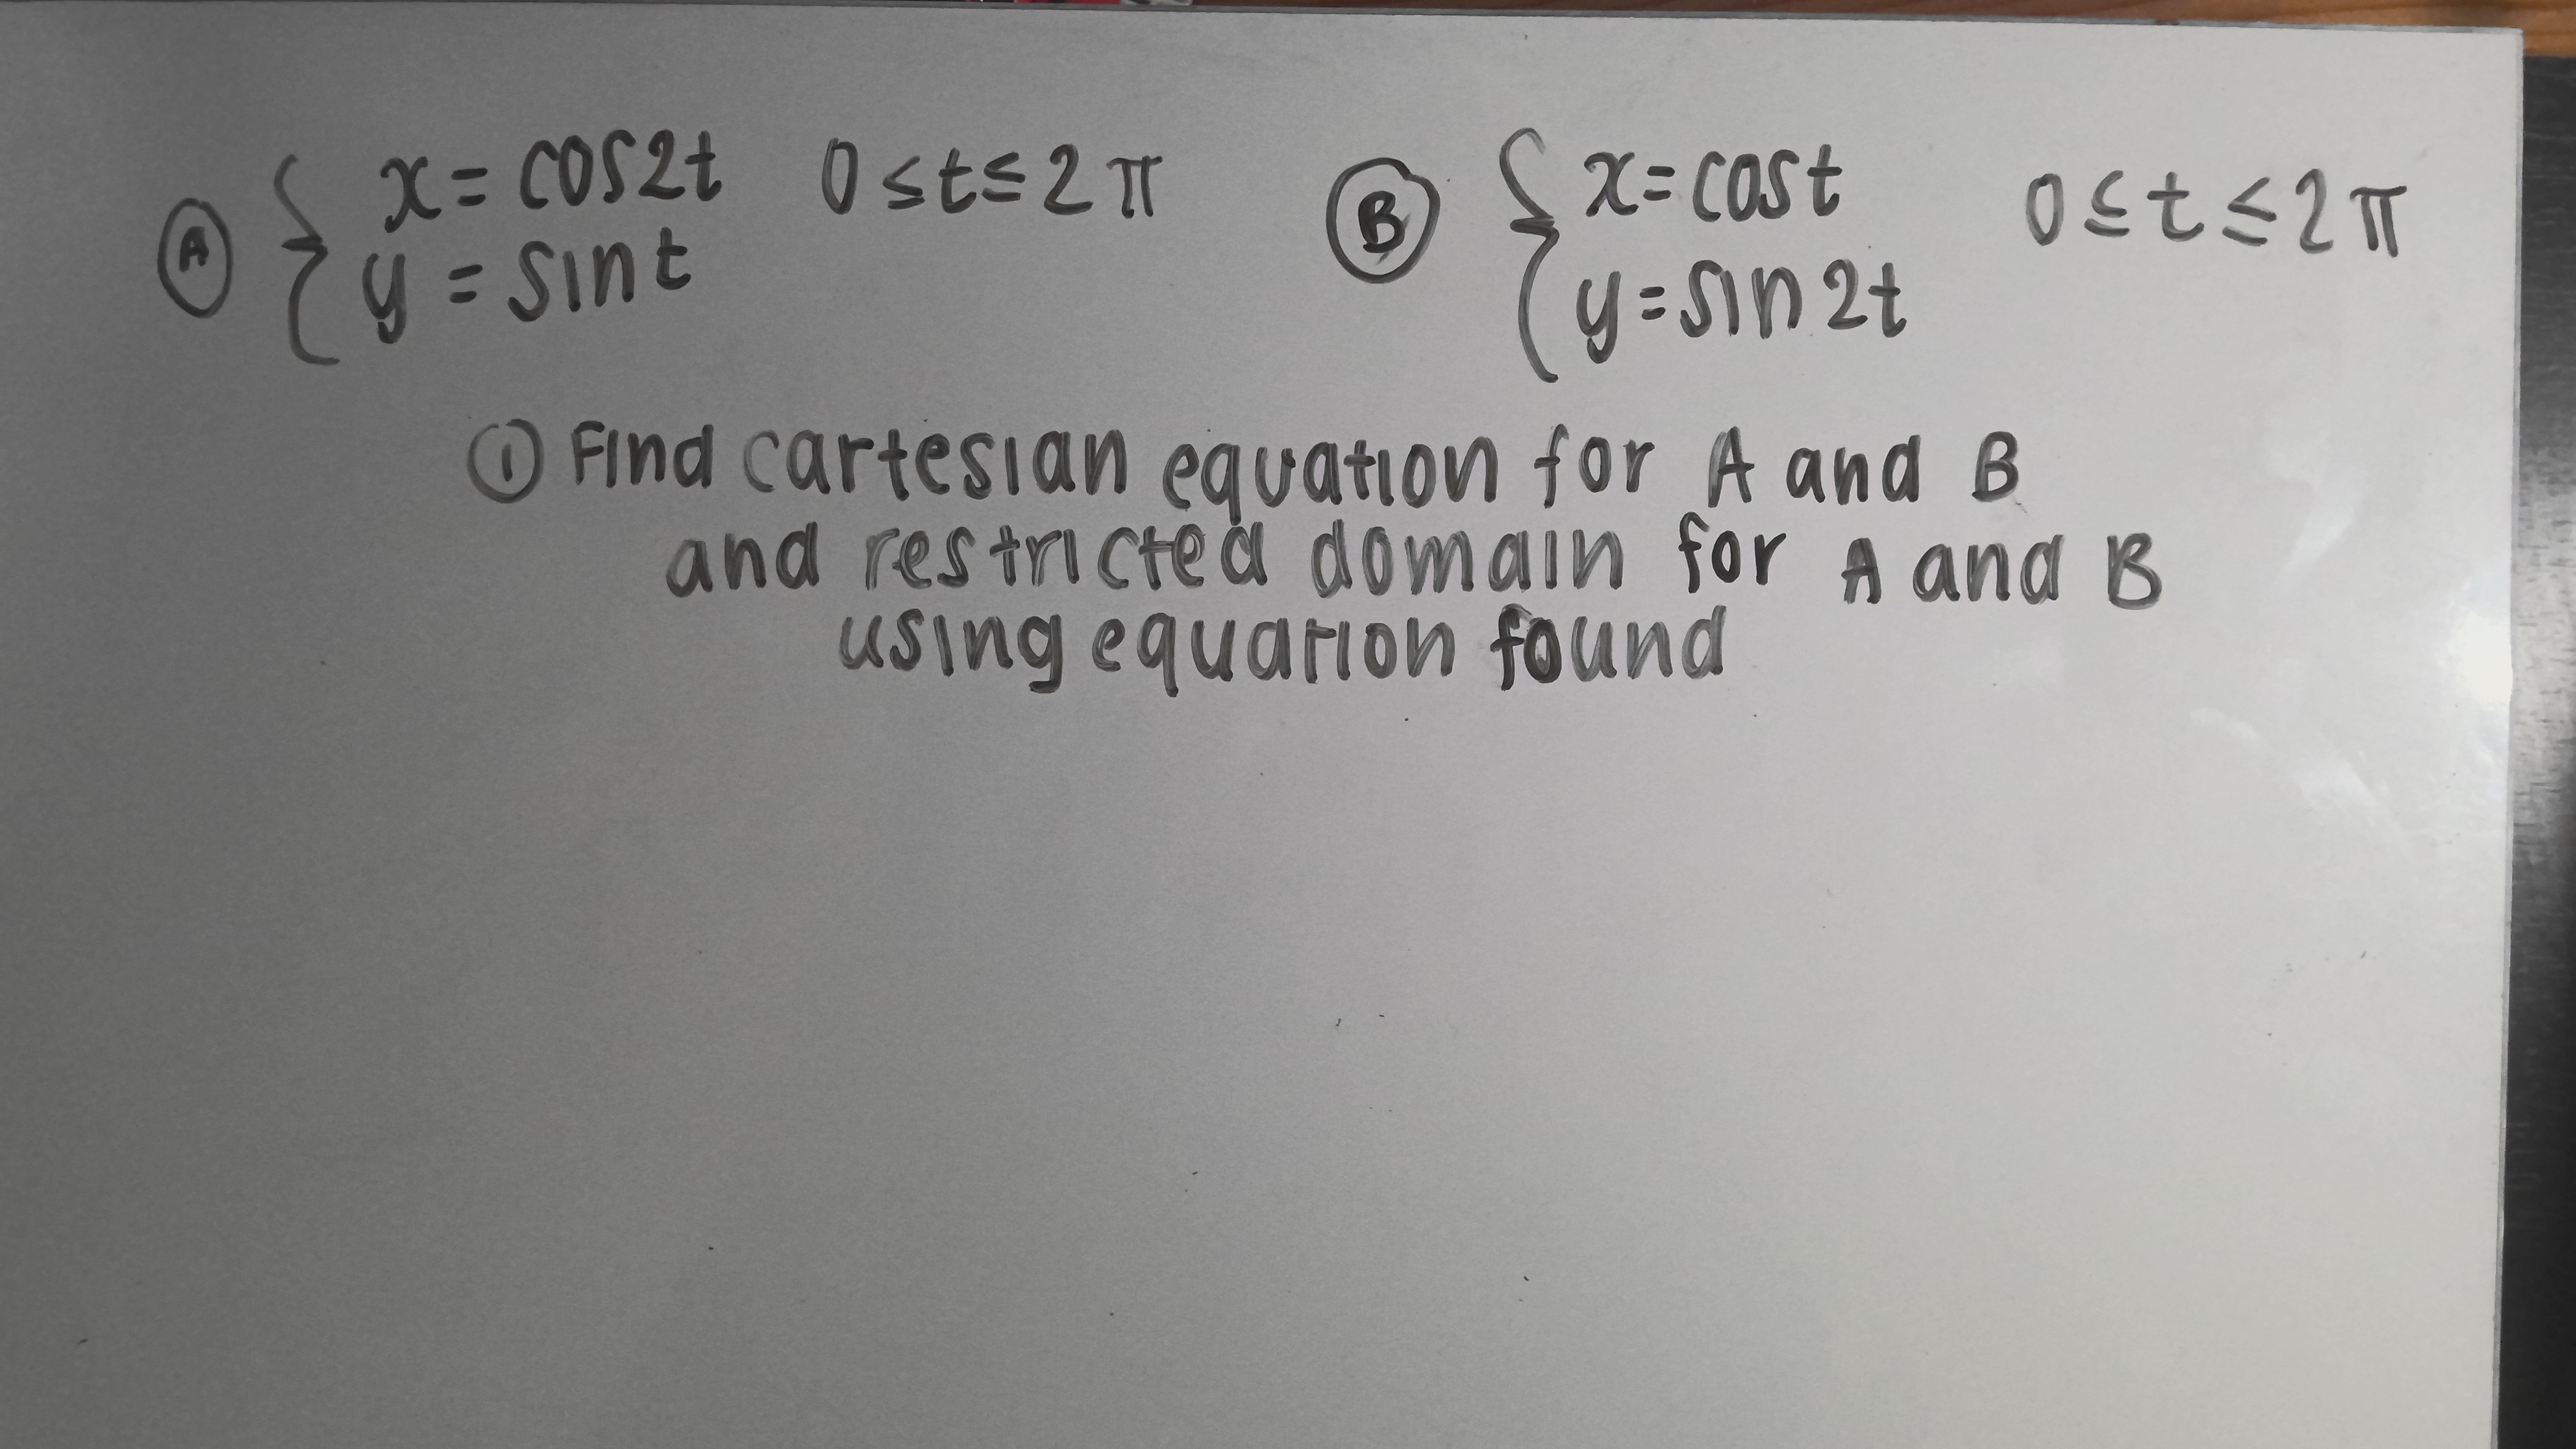 Ⓐ { x = cos2t 0 ≤ t ≤ 2π
y = sint
Ⓑ { x = cost 0 ≤ t ≤ 2π
y = sin2t
① Find cartesian equation for A and B
and restricted domain for A and B
using equation found